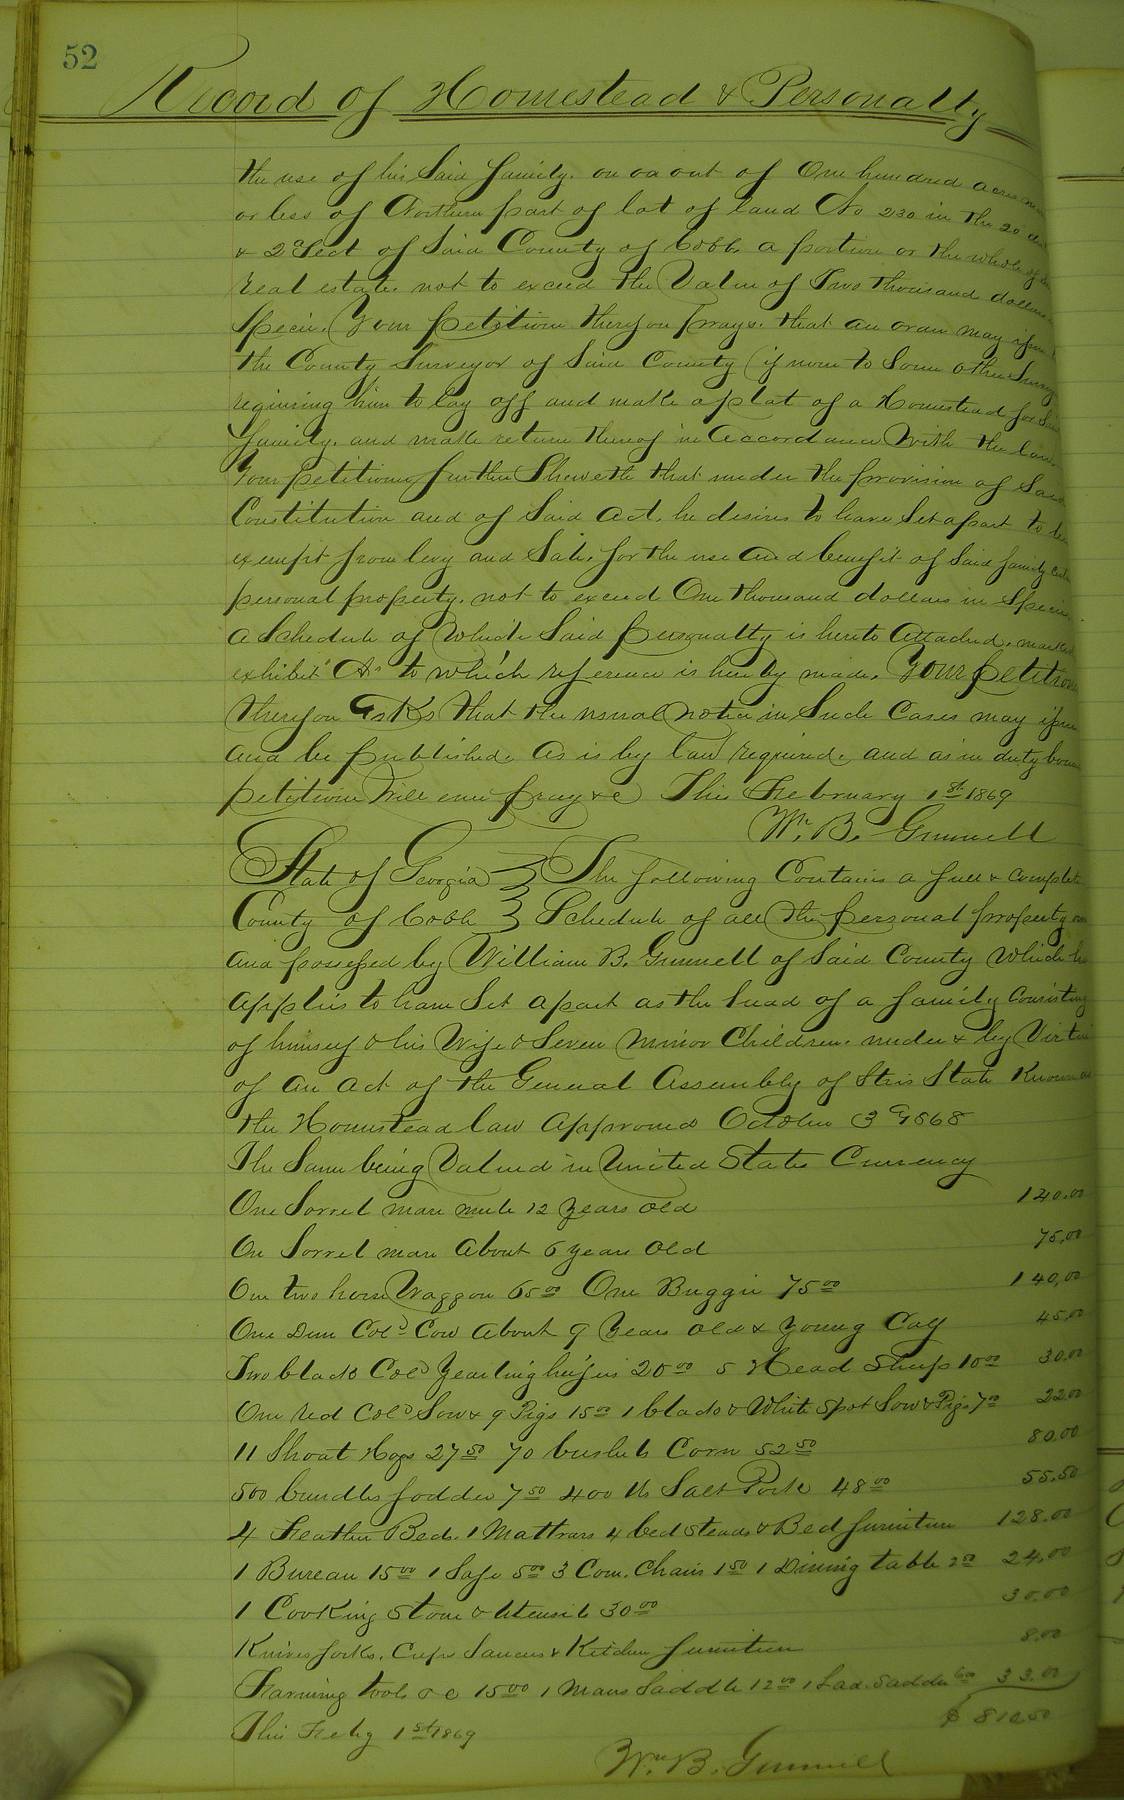 52
Record of Homestead & Personalty
the use of his Said family. on oa out of One hundred acres
or less of Northern part of lot of land No 230 in the 20
& 2d Sect of Said County of Cobb. a portion or the whole of
real estate. not to exceed the Value of Two thousand dollars
Specie. Your petition therefon prays. that an order may issue
the County Surveyor of Said County (if none to Some other
requiring him to lay off and make a plat of a Homestead for
family. and make return thereof in accordance With the law.
Your petitioner further Sheweth that under the provision of Said
Constitution and of Said Act. he desires to have Set apart to be
exempt from levy and Sale. for the use and benefit of Said family
personal property. not to exceed One thousand dollars in Specie
a Schedule of which Said personalty is hereto attached. marked
exhibit "A" to which reference is hereby made. Your petition
therefon asks that the usual notice in Such Cases may issue
and be published. as is by law required. and as in duty bound
petition Will ever pray &c This February 1st 1869
Wm. B. Gunnell
State of Georgia } The following Contains a full & complete
County of Cobb } Schedule of all the personal property
and possessed by William B. Gunnell of Said County which he
applies to have Set apart as the head of a family Consisting
of himself & his Wife & Seven Minor Children. under & by Virtue
of an act of the General Assembly of this State Known as
the Homestead law Approved October 3d 1868
The Same being Valued in United States Currency
One Sorrel mare mule 12 years old 140.00
On Sorrel mare about 6 years old 75.00
One two horse Waggon 65 00 One Buggie 75 00 140.00
One Dun Cold Cow about 9 years old & young Calf 45.00
Two black Cold Yearling heifers 20 00 5 Head Sheep 10 00 30.00
One red Cold Sow & 9 Pigs 15 00 1 black & White Spot Sow & Pigs 7 00 22.00
11 Shoat Hogs 27 50 70 bushels Corn 52 50 80.00
500 bundles fodder 7 50 400 lb Salt Pork 48 00 55.50
4 Feather Beds. 1 Mattrass 4 bedsteads & Bed furniture 128.00
1 Bureau 15 00 1 Safe 5 00 3 Com. Chairs 1 50 1 Dining table 2 50 24.00
1 Cooking Stove & Utensils 30 00 30.00
Knives forks. Cups Saucers & Kitchen furniture 8.00
Farming tools &c 15 00 1 Mans Saddle 12 00 1 Lad. Saddle 6 00 33.00
This Feby 1st 1869 $ 810.50
Wm. B. Gunnell